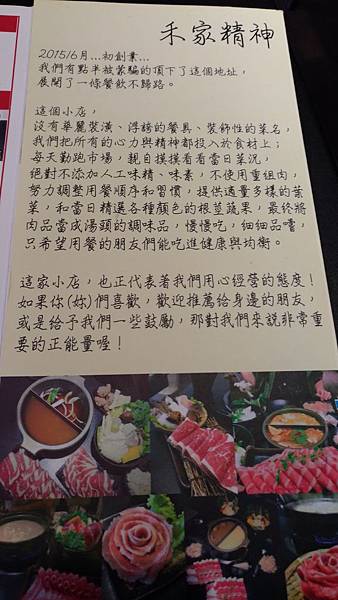 禾家精神
2015/6月...初創業...
我們有點半被蒙騙的頂下了這個地址，
展開了一條餐飲不歸路。
這個小店，
沒有華麗裝潢、浮誇的餐具、裝飾性的菜名，
我們把所有的心力與精神都投入於食材上；
每天勤跑市場，親自摸摸看看當日菜況，
絕對不添加人工味精、味素，不使用重組肉，
努力調整用餐順序和習慣，提供適量多樣的葉
菜，和當日精選各種顏色的根莖蔬果，最終將
肉品當成湯頭的調味品，慢慢吃，細細品嚐，
只希望用餐的朋友們能吃進健康與均衡。
這家小店，也正代表著我們用心經營的態度！
如果你(妳)們喜歡，歡迎推薦給身邊的朋友，
或是給予我們一些鼓勵，那對我們來說非常重
要的正能量喔！